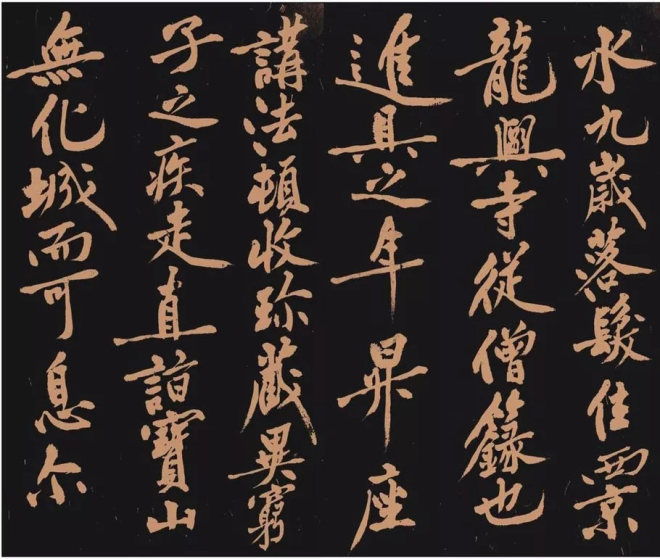 水九歲落髮住西京
龍興寺從僧籙也
進具之年昇座
講法頓收珍藏異窮
子之疾走直詣寶山
無化城而可息尔